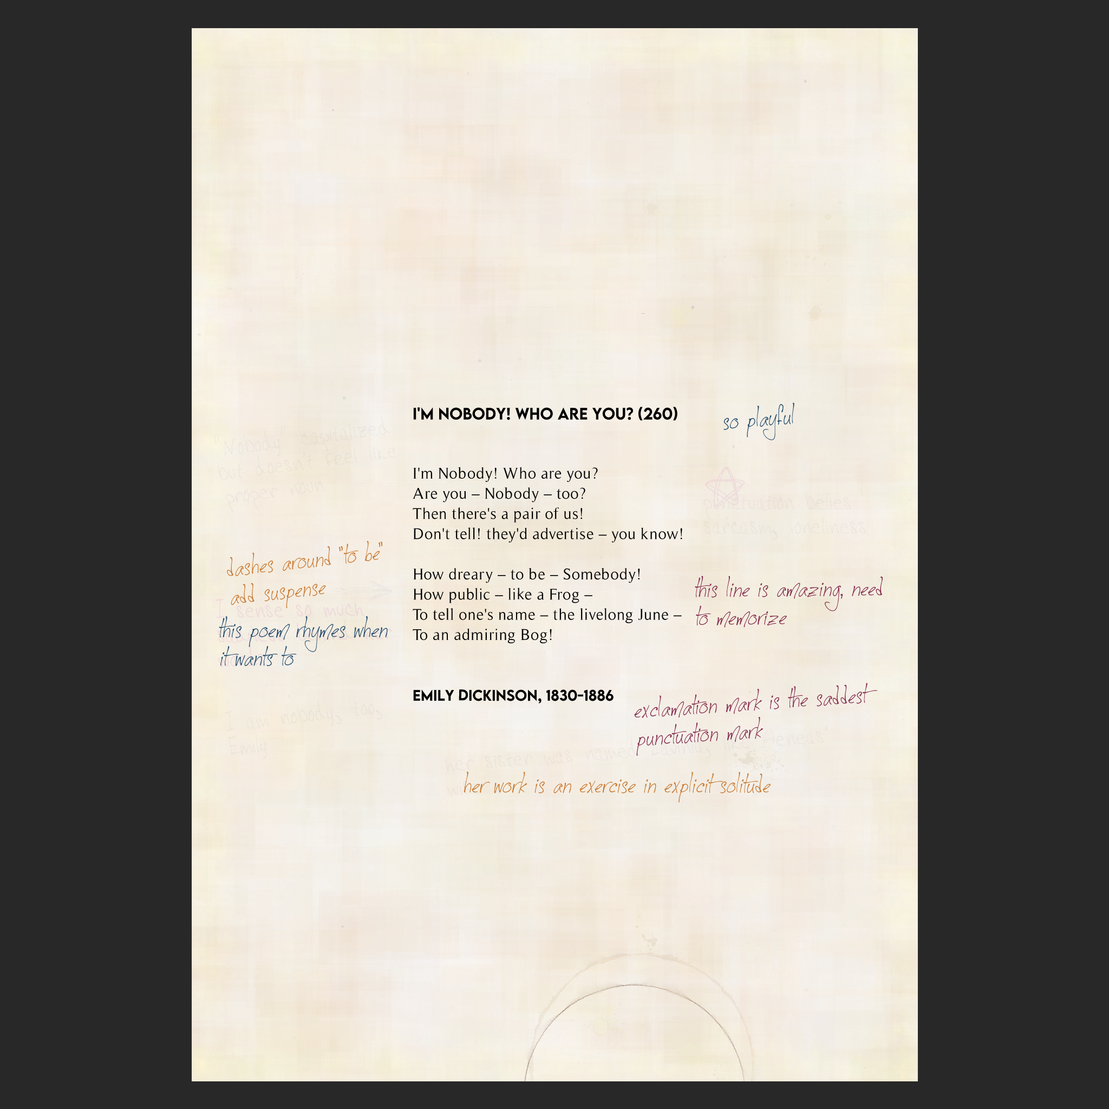 I'M NOBODY! WHO ARE YOU? (260)
so playful
I'm Nobody! Who are you?
Are you – Nobody – too?
Then there's a pair of us!
Don't tell! they'd advertise – you know!
"Nobody" capitalized,
but doesn't feel like
proper noun
punctuation belies
screaming loneliness
dashes around "to be"
add suspense
I sense so much
this poem rhymes when
it wants to
How dreary – to be – Somebody!
How public – like a Frog –
To tell one's name – the livelong June –
To an admiring Bog!
this line is amazing, need
to memorize
EMILY DICKINSON, 1830-1886
exclamation mark is the saddest
punctuation mark
I am nobody, too,
Emily
her sister was named
her work is an exercise in explicit solitude